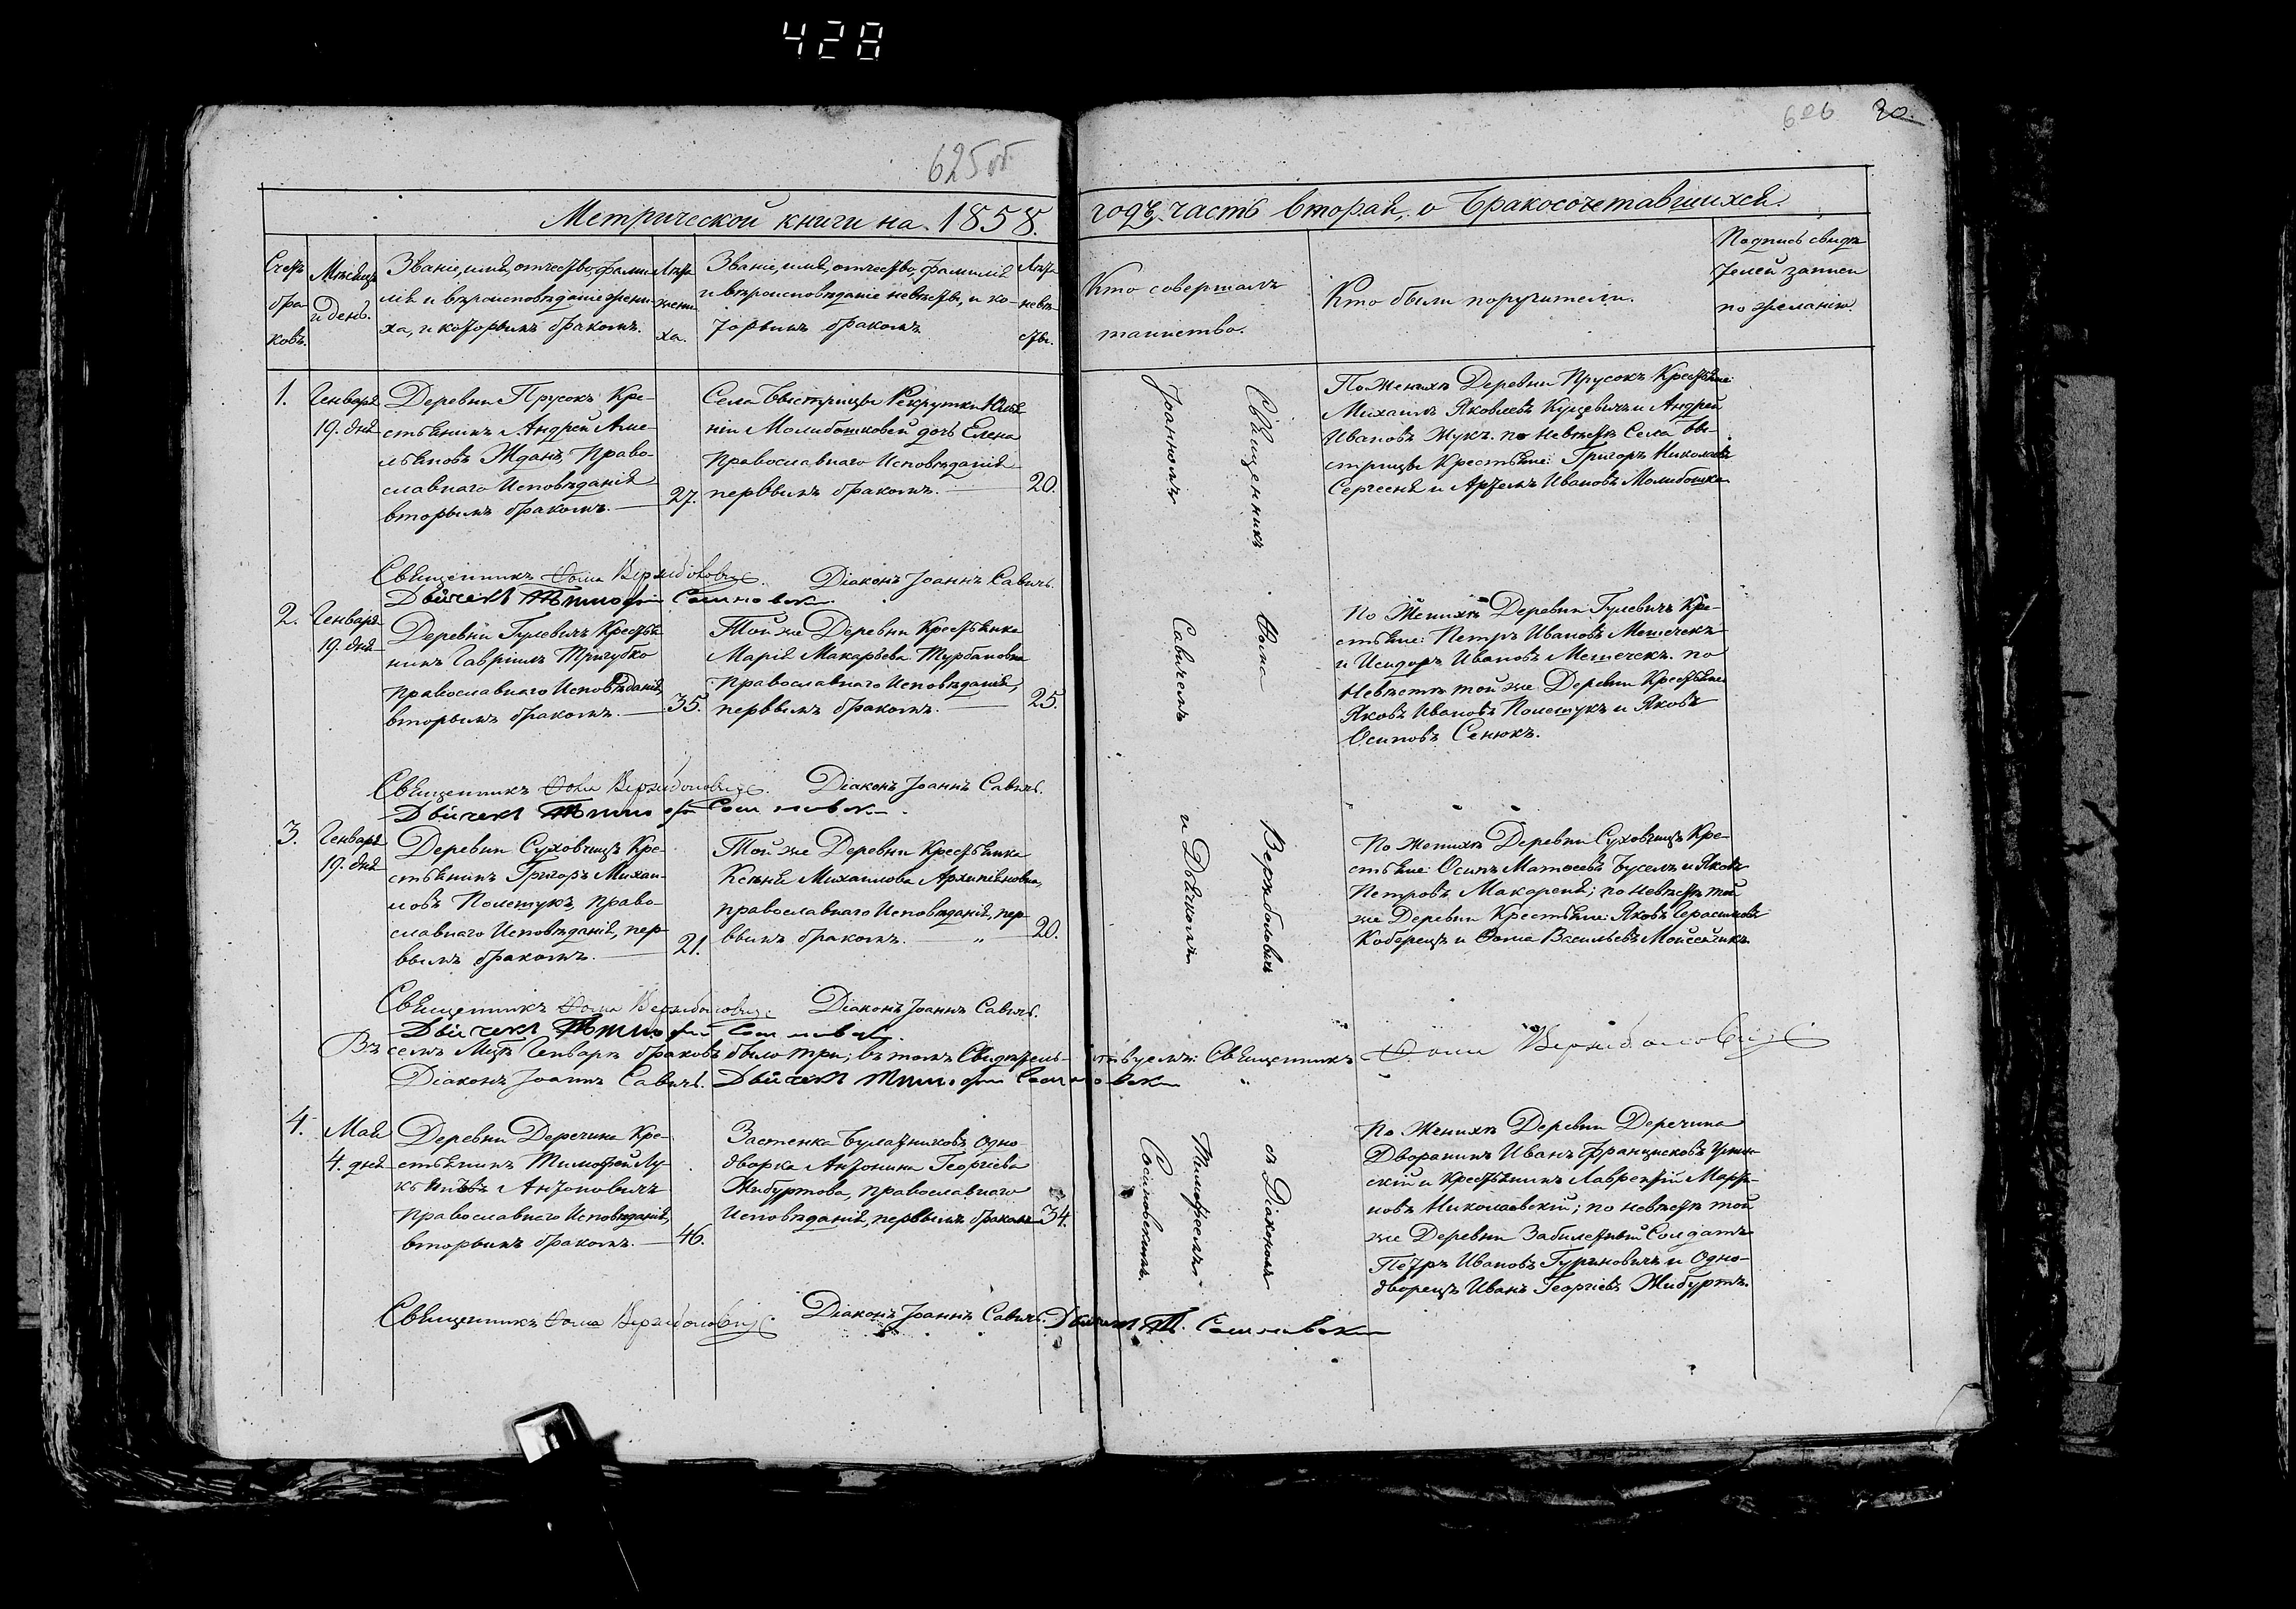 428
625об
626 20.
Метрической книги на 1858. годъ часть вторая, о бракосочетавшихся.
Счетъ браковъ.
Мѣсяцъ и день.
Званіе, имя, отчество, фами-
лія и вѣроисповѣданіе жени-
ха, и которымъ бракомъ.
Лѣта
жени-
ха.
Званіе, имя, отчество, фамилія
и вѣроисповѣданіе невѣсты, и ко-
торымъ бракомъ
Лѣта
невѣ-
сты.
Кто совершалъ
таинство.
Кто были поручители.
Подпись свидѣ
телей записи
по желанію.
1.
Генваря
19. дня
Деревни Прусокъ Кре-
стьянинъ Андрей Аме-
льяновъ Жданъ, Право-
славнаго Исповѣданія
вторымъ бракомъ.
27.
Села Быстрицы Рекрутки
Молибошковой дочь Елена
Православнаго Исповѣданія
первымъ бракомъ.
20.
По Женихѣ Деревни Прусокъ Крестьяне:
Михаилъ Яковлевъ Куцевичъ и Андрей
Ивановъ Жукъ. по невѣстѣ Села Бы-
стрицы Крестьяне: Григоръ Николаевъ
Сергееня и Артемъ Ивановъ Молибошка
Священникъ Ѳома Вержболовичъ. Діаконъ Іоаннъ Савичъ.
Дьячекъ Тимофей Сосиновскій
2.
Генваря
19. дня
Деревни Гулевичъ Крестья
нинъ Гавріилъ Тригубко
Православнаго Исповѣданія,
вторымъ бракомъ.
35.
Той же Деревни Крестьянка
Марія Макарьева Турбановна
Православнаго Исповѣданія,
первымъ бракомъ.
25.
По Женихѣ Деревни Гулевичъ Кре-
стьяне: Петръ Ивановъ Мешечекъ
и Исидоръ Ивановъ Мешечекъ. по
Невѣстѣ той же Деревни Крестьяне
Яковъ Ивановъ Полещукъ и Яковъ
Осиповъ Сенюкъ.
Священникъ Ѳома Вержболовичъ. Діаконъ Іоаннъ Савичъ.
Дьячекъ Тимофей Сосиновскій.
3.
Генваря
19. дня
Деревни Суховчицъ Кре-
стьянинъ Григоръ Михаи-
ловъ Полещукъ, Право-
славнаго Исповѣданія, пер-
вымъ бракомъ.
21.
Той же Деревни Крестьянка
Ксенія Михаилова Архипіяновна,
православнаго Исповѣданія, пер-
вымъ бракомъ. „
20.
По Женихѣ Деревни Суховчицъ Кре-
стьяне: Осипъ Матѳеевъ Буселъ и Яковъ
Петровъ Макареня; по невѣстѣ той
же Деревни Крестьяне: Яковъ Герасимовъ
Коберецъ и Ѳома Васильевъ Моисейчикъ.
Священникъ Ѳома Вержболовичъ Діаконъ Іоаннъ Савичъ.
Дьячекъ Тимофей Сосиновскій.
Въ семъ Мцѣ Генварѣ браковъ было три; въ томъ Свидѣтель-ствуемъ: Священникъ Ѳома Вержболовичъ
Діаконъ Іоаннъ Савичъ. Дьячекъ Тимофей Сосиновскій
4.
Мая
4. дня
Деревни Деречина Кре-
стьянинъ Тимофей Лу-
Антоновичъ
Православнаго Исповѣданія,
вторымъ бракомъ.
46.
Застенка Булатниковъ одно-
дворка Антонина Георгіева
Жибуртова, православнаго
Исповѣданія, первымъ бракомъ
34.
По Женихѣ Деревни Деречина
Дворянинъ Иванъ Францисковъ
и Крестьянинъ Лаврентій Марти-
новъ Николаевскій; по невѣстѣ той
же Деревни Забилетный Солдатъ
Петръ Ивановъ Гуриновичъ и Одно-
дворецъ Иванъ Георгіевъ Жибуртъ.
Священникъ Ѳома Вержболовичъ Діаконъ Іоаннъ Савичъ. Дьячекъ Т. Сосиновскій
Священникъ Ѳома Вержболовичъ съ Діакономъ
Іоанномъ Савичемъ и Дьячкомъ Тимофеемъ
Сосиновскимъ.